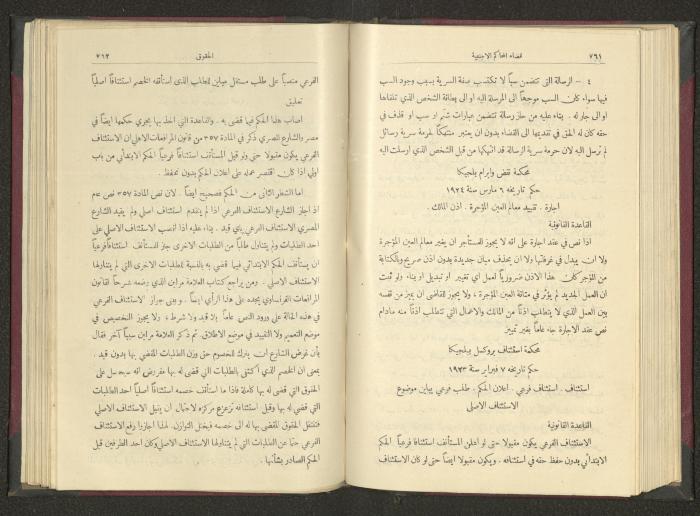 ٧٦١ قضاء المحاكم الاجنبية
٤ - الرسالة التى تتضمن سباً لا تكتسب صفة السرية بسبب وجود السب
فيها سواء كان السب موجهاً الى المرسلة اليه او الى بطانة الشخص الذي تلقاها
او الى جاره . بناء عليه من حاز رسالة تتضمن عبارات شتم او سب او قذف في
حقه كان له الحق في تقديمها الى القضاء بدون ان يعتبر منتهكاً لحرمة سرية رسائل
لم ترسل اليه لان حرمة سرية الرسالة قد انتهكها من قبل الشخص الذي ارسلت اليه
محكمة نقض وابرام بلجيكا
حكم تاريخه ٦ مارس سنة ١٩٢٤
اجارة . تقييد معالم العين المؤجرة . اذن المالك .
القاعدة القانونية
اذا نص في عند اجارة على انه لا يجوز للمستأجر ان يغير معالم العين المؤجرة
ولا ان يبدل في غرفتها ولا ان يحذف مبان جديدة بدون اذن صريح وبالكتابة
من المؤجر كان هذا الاذن ضرورياً لعمل اي تغيير او تبديل او بناء ولو ثبت
ان العمل الجديد لم يؤثر في متانة العين المؤجرة ، ولا يجوز للقاضى ان يميز من نفسه
بين العمل الذي لا يتطلب اذناً من المالك والاعمال التي تتطلب اذناً منه مادام
نص عند الاجارة جاء عاماً بغير تمييز
محكمة استئناف بروكسل ببلجيكا
حكم تاريخه ٧ فبراير سنة ١٩٢٣
استئناف . استئناف فرعي . اعلان الحكم . طلب فرعي يباين موضوع
الاستئناف الاصلى
القاعدة القانونية
الاستئناف الفرعي يكون مقبولا حتى لو اعلن المستأنف استئنافا فرعياً الحكم
الابتدائي بدون حفظ حقه في استئنافه . ويكون مقبولا ايضاً حتى لو كان الاستئناف
الحقوق ٧٦٢
الفرعي منصباً على طلب مستقل مباين للطلب الذى استأنفه الخصم استئنافاً اصلياً
تعليق
اصاب هذا الحكم فيما قضى به . والقاعدة التي اخذ بها يجري حكمها ايضاً في
مصر والشارع المصري ذكر في المادة ٣٥٧ من قانون المرافعات الاهلي ان الاستئناف
الفرعي يكون مقبولا حتى ولو قبل المستأنف استئنافاً فرعياً الحكم الابتدائي من باب
اولي اذا كان اقتصر عمله على اعلان الحكم بدون تحفظ .
اما الشطر الثانى من الحكم فصحيح ايضاً . لان نص المادة ٣٥٧ نص عام
اذ اجاز الشارع الاستئناف الفرعي اذا لم يتقدم استئناف اصلي ولم يقيد الشارع
المصري الاستئناف الفرعي باي قيد . بناء عليه اذا انصب الاستئناف الاصلى على
احد الطلبات ولم يتناول طلباً من الطلبات الاخرى جاز للمستأنف استئنافاً فرعياً
ان يستأنف الحكم الابتدائي فيما قضي به بالنسبة للطلبات الاخرى التي لم يتناولها
الاستئناف الاصلي . ومن يراجع كتاب العلامة مرابن الذي وضعه شرحاً لقانون
المرافعات الفرنساوي يجده على هذا الرأي ايضاً . وبنى جواز الاستئناف الفرعي
في هذه الحالة على ورود النص عاماً بلا قيد ولا شرط ، ولا يجوز التخصيص في
موضع التعميم ولا التقييد في موضع الاطلاق . ثم ذكر العلامة مرابن سبباً آخر فقال
بأن غرض الشارع ان يترك للخصوم حتى وزن الطلبات المقضي بها بدون قيد .
بمعنى ان الخصم الذي اكتفى بالطلبات التي قضى له بها مفروض انه سيحصل على
الحقوق التي قضى له بها كاملة فاذا ما استأنف خصمه استئنافاً اصلياً احد الطلبات
التي قضي له بها وقبل استئنافه تزعزع مركزه لاحتمال ان ينيل الاستئناف الاصلى
فتنتقل الحقوق المقضي بها له الى خصمه فيختل التوازن . لهذا اجازوا رفع الاستئناف
الفرعي حتماً عن الطلبات التي لم يتناولها الاستئناف الاصلي وكان احد الطرفين قبل
الحكم الصادر بشأنها .